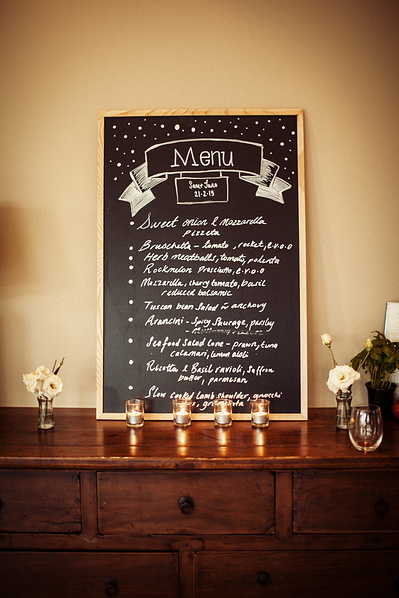 Menu
21-2-15
Sweet onion & Mozzarella
pizzeta
Bruschetta - tomato, rocket, e.v.o.o
Herb meatballs, tomato, polenta
Rockmelon Prosciutto, e.v.o.o
Mozzarella, cherry tomato, basil
reduced balsamic
Tuscan bean Salad ñ anchovy
Arancini - Spicy Sausage, parsley
Seafood Salad Cone - prawn, tuna
calamari, lemon aioli
Ricotta & Basil ravioli, Saffron
butter, parmesan
Slow Cooked Lamb shoulder, gnocchi
gremolata